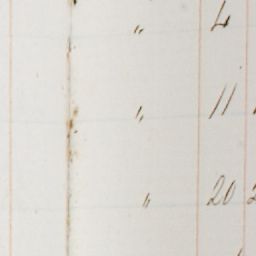 " 4
" 11
" 20